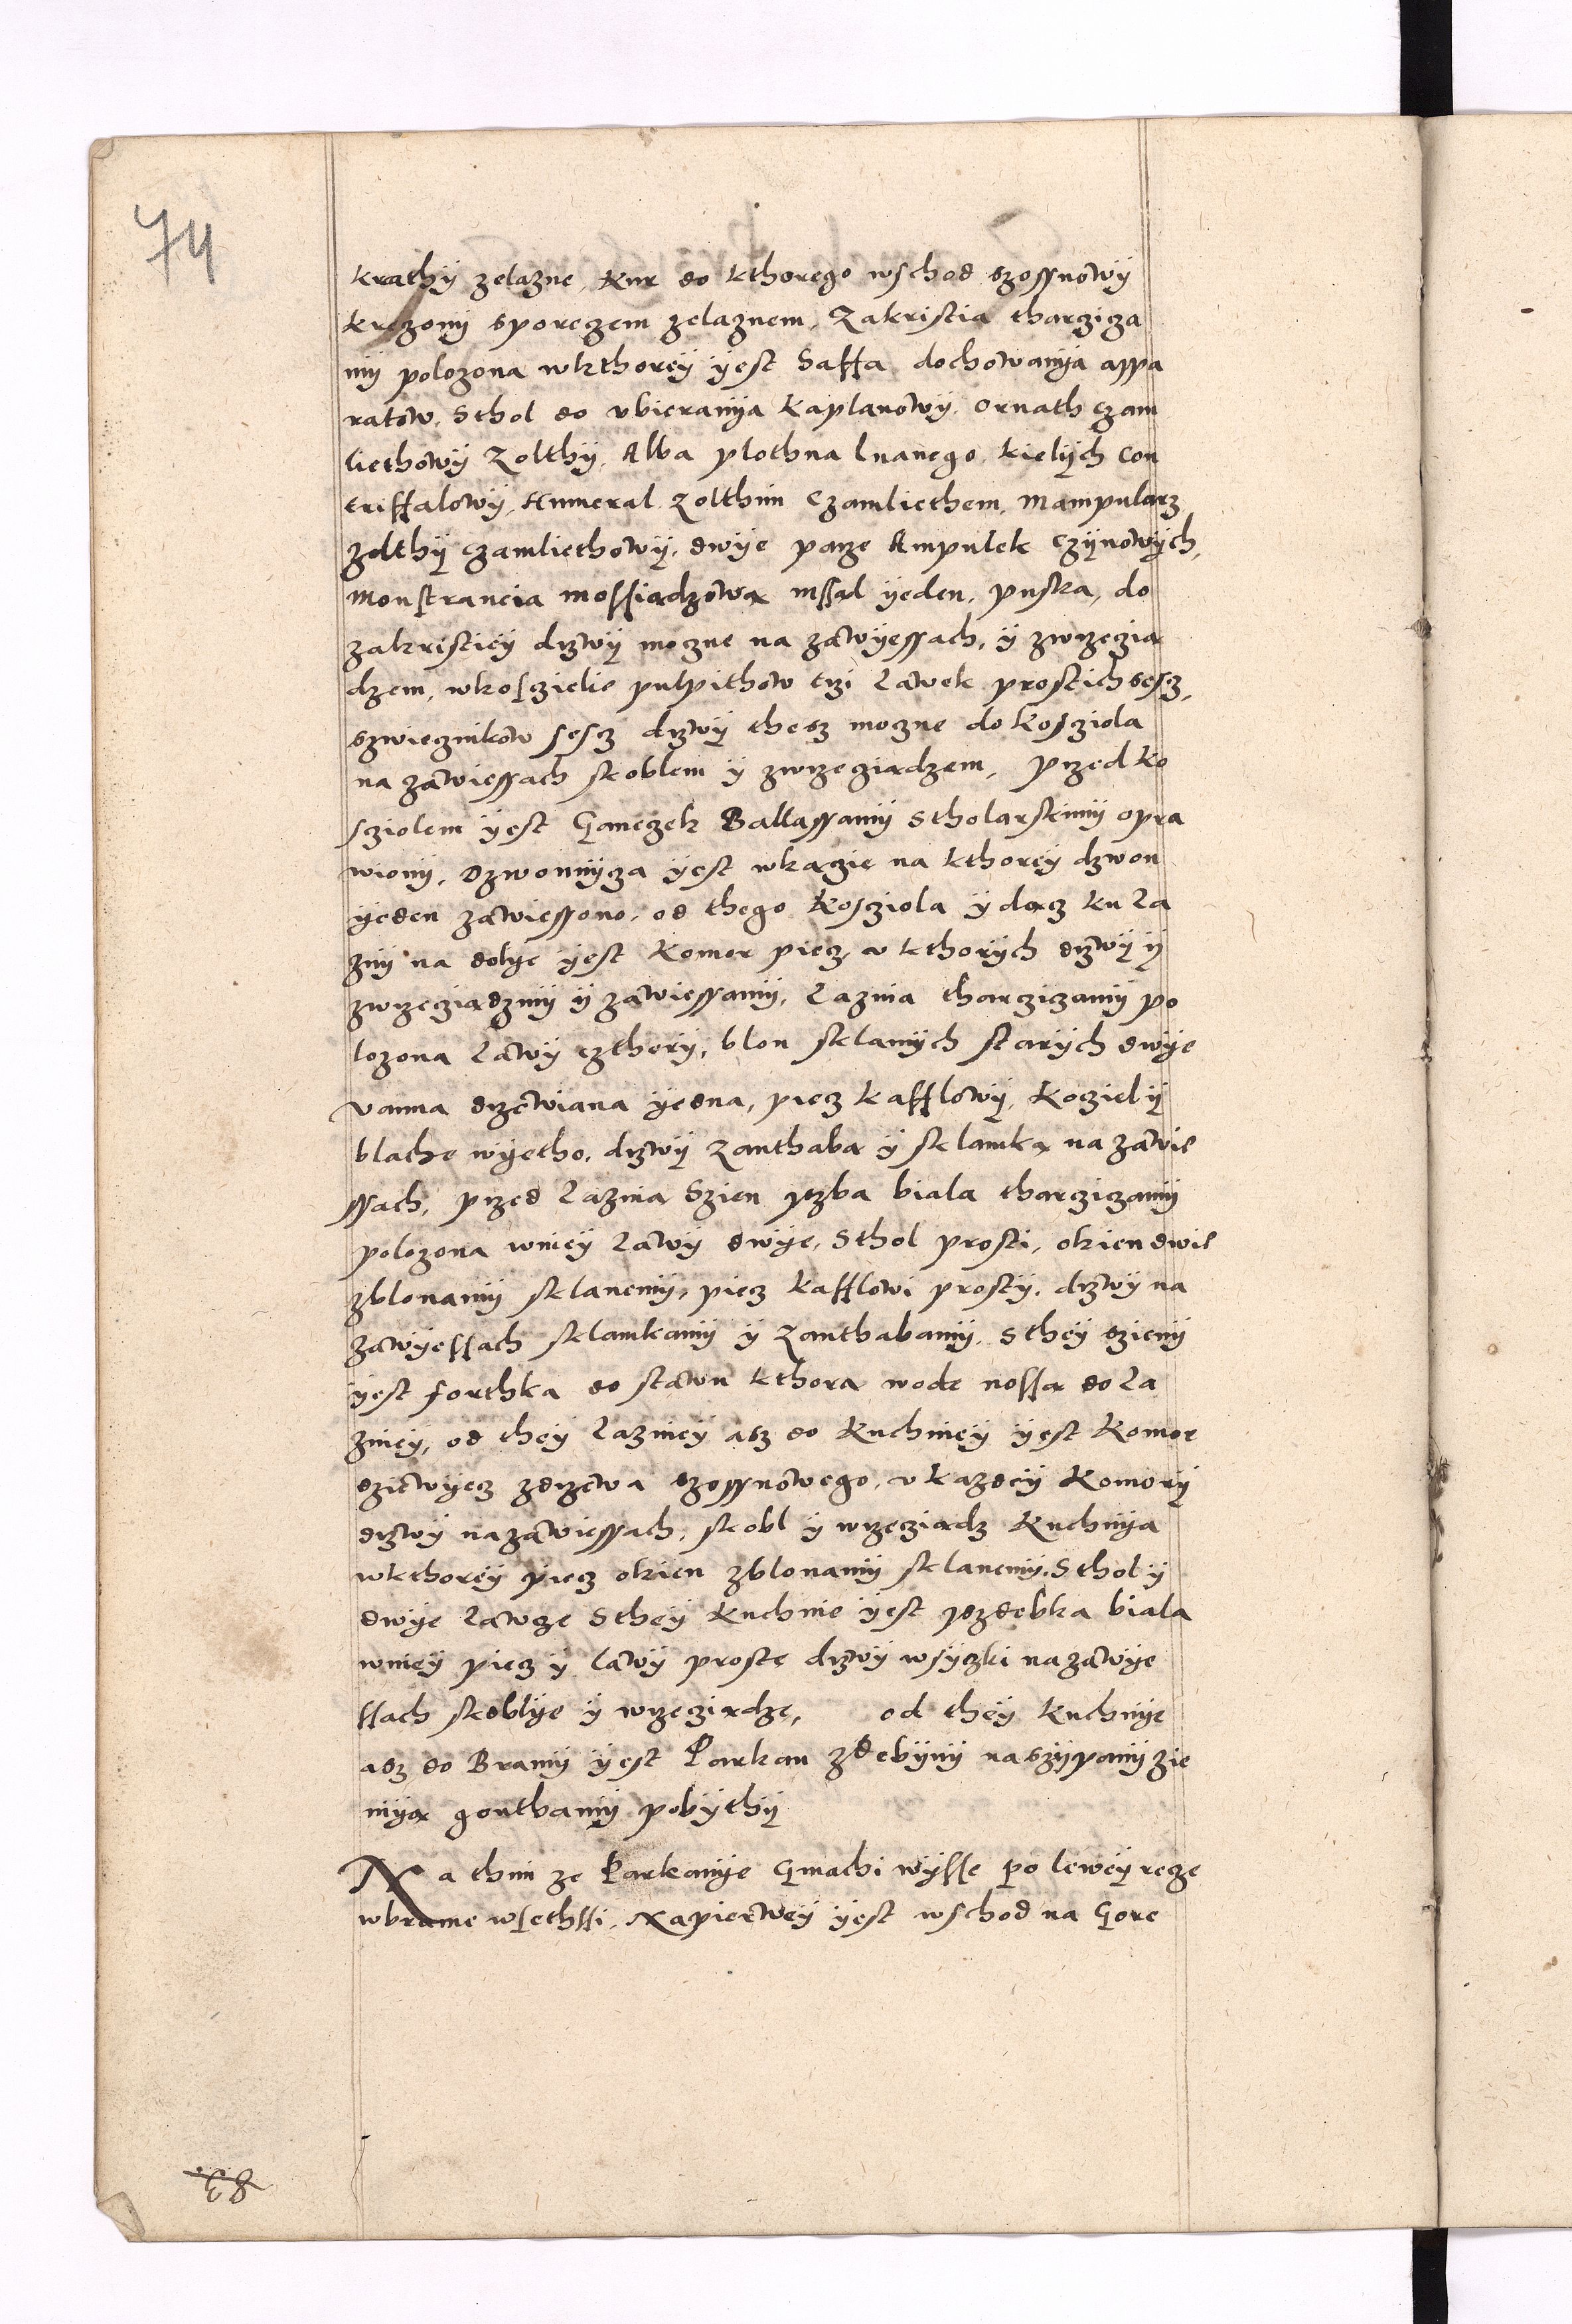 74
krathÿ zelazne, Kur do kthorego wschod szossnowÿ
kreczonÿ sporeczem zelaznem, Zakristia tharcziza
mÿ polozona wkthoreÿ ÿest Saffa dochowanÿa appa
ratow, Sthol do vbieranÿa kaplanowÿ, Ornath czam
liethowÿ Zolthÿ, Alba plothna lnanego, kielÿch con
triffalowÿ, Humeral Zolthim Czamliethem, Mampularz
zolthÿ czamliethowÿ, dwÿe parze Ampulek czÿnowÿch,
Monstrancia mossiadzowa mssal ÿeden, puska, do
zakristieÿ drzwÿ moczne na zawÿessach, ÿ zwrzeczia
dzem, wkosczielie pulpithow trzi Lawek prostich sesz,
szwiecznikow sesz drzwÿ thesz moczne do kosziola
na zawiessach skoblem ÿ zwrzecziadzem, przed ko
scziolem ÿest Ganczek Ballassamÿ stholarskimÿ opra
wionÿ, Dzwonnÿcza ÿest wkaczie na kthoreÿ dzwon
ÿeden zawiessono, od thego kosziola ÿdacz ku La
znÿ na dolÿe ÿest komor piecz, v kthorÿch drzwÿ ÿ
zwrzecziadzmÿ ÿ zawiessamÿ, Laznia tharczizamÿ po
lozona Lawÿ czthorÿ, blon sklanÿch starÿch dwÿe
vanna drzewiana ÿedna, piecz kafflowÿ, koczielÿ
blache wÿetho, drzwÿ Zanthaba ÿ sklamka na zawie
ssach, przed Laznia Szien ÿzba biala tharczizamÿ
polozona wnieÿ Lawÿ dwÿe, Sthol prosti, okien dwie
zblonamÿ sklanemÿ, piecz kafflowi prostÿ, drzwÿ na
zawÿessach sklamkamÿ ÿ Zanthabamÿ, Stheÿ szienÿ
ÿest forthka do stawu kthora wode nossa do La
znieÿ, od theÿ Lazmieÿ asz do kuchnieÿ ÿest komor
dziewÿecz zdrzewa szossnowego, v kazdeÿ komorÿ
drzwÿ na zawiessach, skobl ÿ wrzecziadz Kuchnÿa
wkthoreÿ piecz okien zblonamÿ sklanemÿ, Stholÿ
dwÿe Lawcze Stheÿ kuchnie ÿest ÿzdebka biala
wnieÿ piecz ÿ lawÿ proste drzwÿ wsÿczki na zawÿe
ssach skoblÿe ÿ wrzeczirdze, od theÿ kuchnÿe
asz do Bramÿ ÿest Parkan zdebÿnÿ naszÿpanÿ zie
mÿa gonthamÿ pobÿthÿ
Na thim ze Parkanÿe Gmachi wÿsse po leweÿ recze
wbrame wsethssi, Napierweÿ ÿest wschod na Gore
83